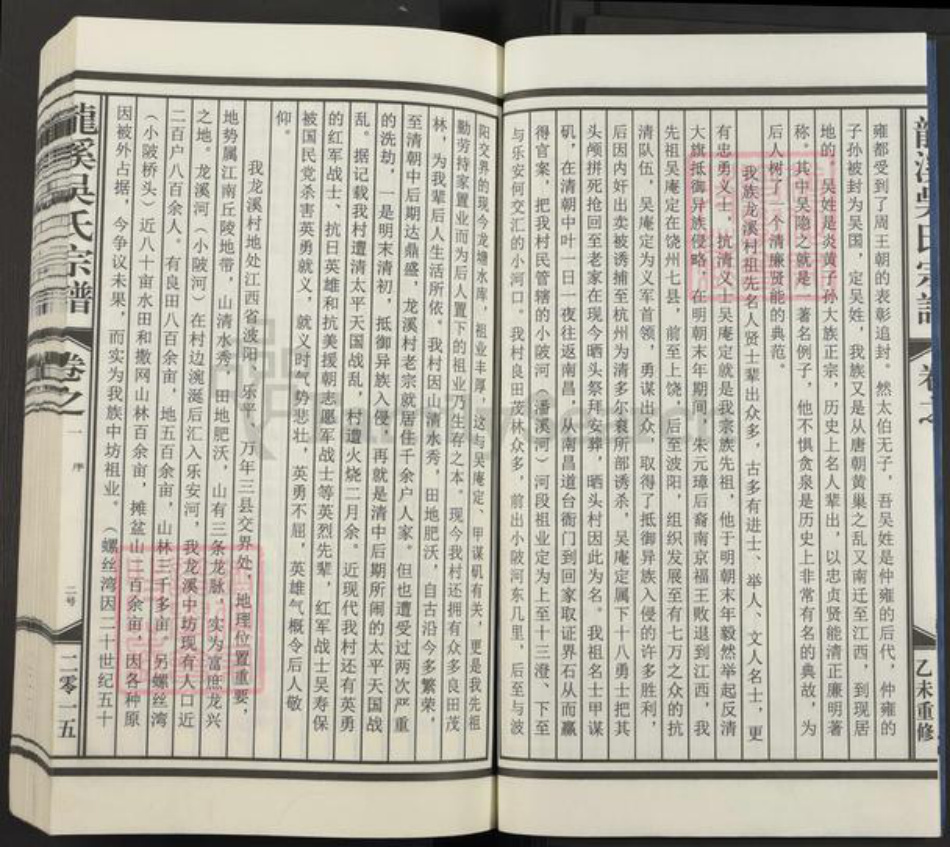 雍都受到了周王朝的表彰追封。然太伯无子，吾吴姓是仲雍的后代，仲雍的
子孙被封为吴国，定吴姓，我族又是从唐朝黄巢之乱又南迁至江西，到现居
地的。吴姓是炎黄子孙大族正宗，历史上名人辈出，以忠贞贤能清正廉明著
称。其中吴隐之就是一著名例子，他不惧贪泉是历史上非常有名的典故，为
后人树了一个清廉贤能的典范。
我族龙溪村祖先名人贤士辈出众多，古多有进士、举人、文人名士，更
有忠勇义士，抗清义士吴庵定就是我宗族先祖，他于明朝末年毅然举起反清
大旗抵御异族侵略，在明朝末年期间，朱元璋后裔南京福王败退到江西，我
先祖吴庵定在饶州七县，前至上饶，后至波阳，组织发展至有七万之众的抗
清队伍，吴庵定为义军首领，勇谋出众，取得了抵御异族入侵的许多胜利，
后因内奸出卖被诱捕至杭州为清多尔衮所部诱杀，吴庵定属下十八勇士把其
头颅拼死抢回至老家在现今晒头祭拜安葬，晒头村因此为名。我祖名士甲谋
矶，在清朝中叶一日一夜往返南昌，从南昌道台衙门到回家取证界石从而赢
得官案，把我村民管辖的小陂河（潘溪河）河段祖业定为上至十三澄、下至
与乐安何交汇的小河口。我村良田茂林众多，前出小陂河东几里，后至与波
龍溪吳氏宗譜
卷之一
序
二号
二零一五
乙未重修
阳交界的现今龙塘水库，祖业丰厚，这与吴庵定、甲谋矶有关，更是我先祖
勤劳持家置业而为后人置下的祖业乃生存之本。现今我村还拥有众多良田茂
林，为我辈后人生活所依。我村因山清水秀，田地肥沃，自古沿今多繁荣，
至清朝中后期达鼎盛，龙溪村老宗就居住千余户人家。但也遭受过两次严重
的洗劫，一是明末清初，抵御异族入侵，再就是清中后期所闹的太平天国战
乱。据记载我村遭清太平天国战乱，村遭火烧二月余。近现代我村还有英勇
的红军战士、抗日英雄和抗美援朝志愿军战士等英烈先辈，红军战士吴寿保
被国民党杀害英勇就义，就义时气势悲壮，英勇不屈，英雄气概令后人敬
仰。
我龙溪村地处江西省波阳、乐平、万年三县交界处，地理位置重要，
地势属江南丘陵地带，山清水秀，田地肥沃，山有三条龙脉，实为富庶龙兴
之地。龙溪河（小陂河）在村边涴涎后汇入乐安河，我龙溪中坊现有人口近
二百户八百余人。有良田八百余亩，地五百余亩，山林三千多亩，另螺丝湾
（小陂桥头）近八十亩水田和撒网山林百余亩，摊盆山二百余亩，因各种原
因被外占据，今争议未果，而实为我族中坊祖业。（螺丝湾因二十世纪五十